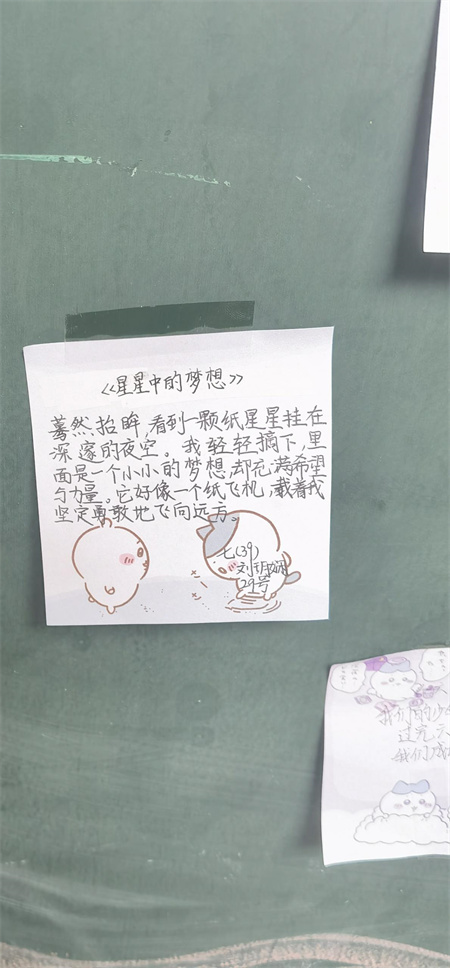 《星星中的梦想》
蓦然抬眸,看到一颗纸星星挂在
深邃的夜空。我轻轻摘下,里
面是一个小小的梦想,却充满希望
与力量。它好像一个纸飞机,载着我
坚定勇敢地飞向远方
七(39)
刘玥
29号
我们的少
过充
我们